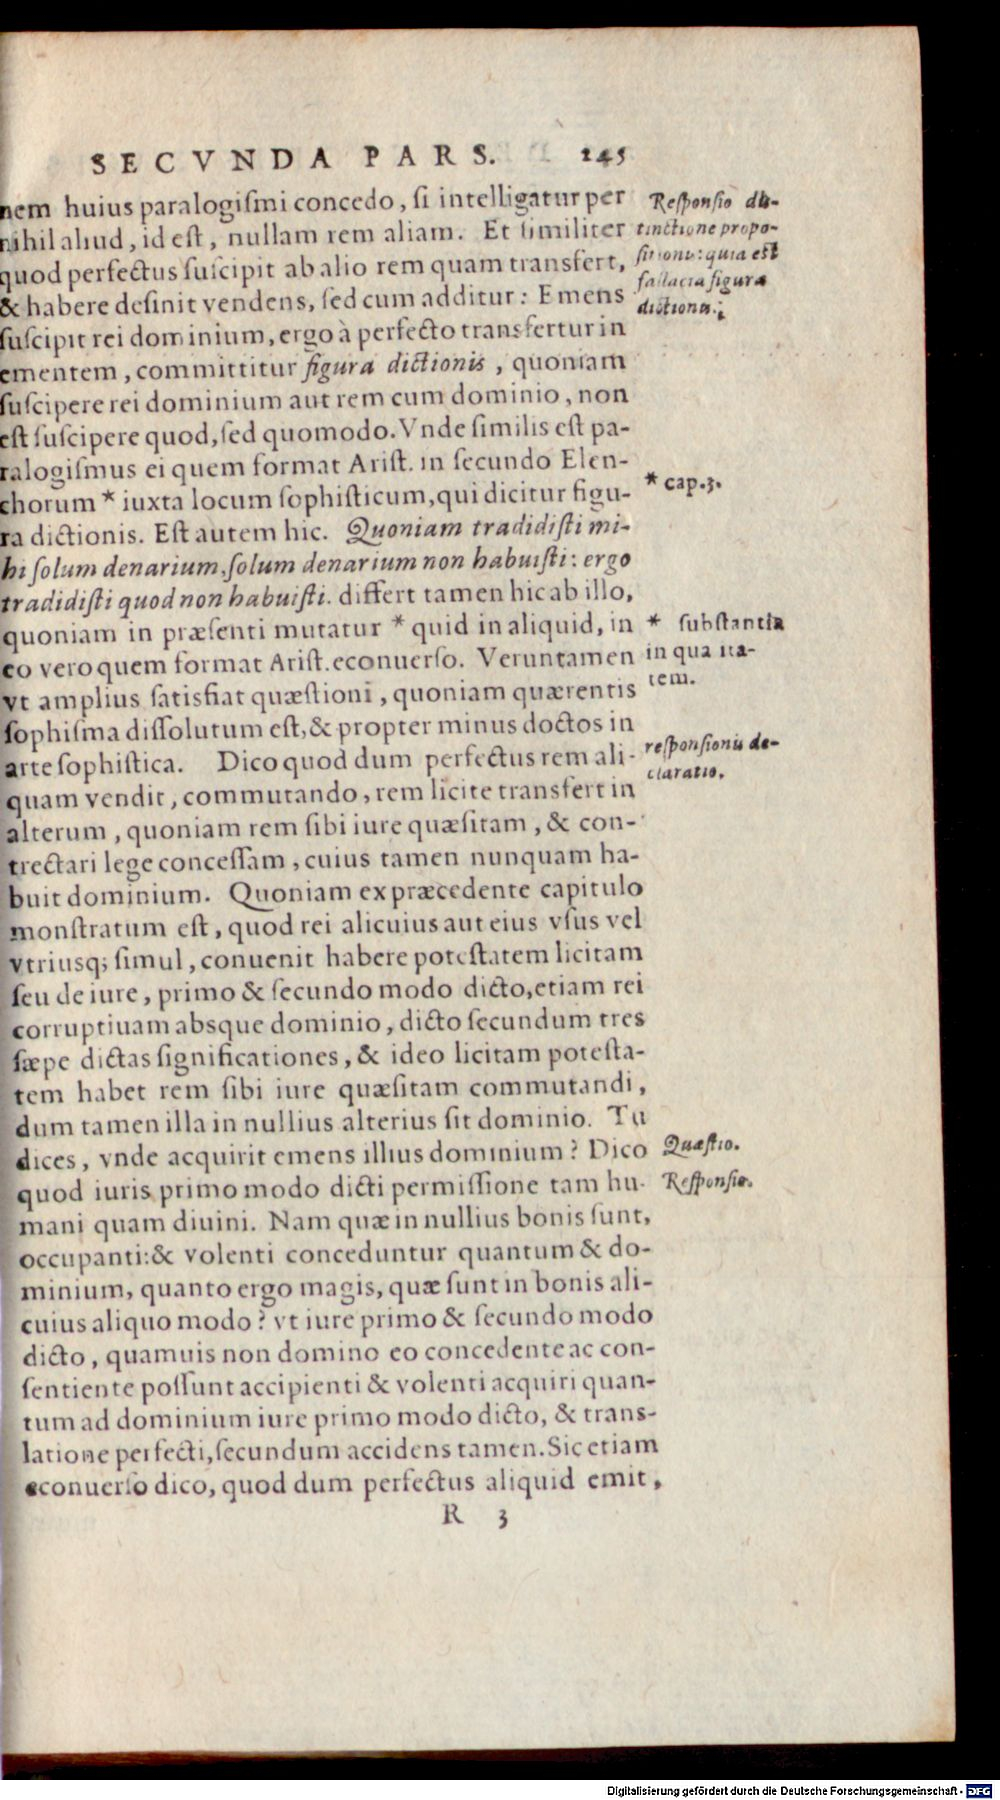 SECVNDA PARS. 245
nem huius paralogiſmi concedo, ſi intelligatur per
nihil aliud, id eſt, nullam rem aliam. Et ſimiliter
quod perfectus ſuſcipit ab alio rem quam transfert,
& habere deſinit vendens, ſed cum additur: Emens
ſuſcipit rei dominium, ergo à perfecto transfertur in
ementem, committitur figura dictionis, quoniam
ſuſcipere rei dominium aut rem cum dominio, non
eſt ſuſcipere quod, ſed quomodo. Vnde ſimilis eſt pa-
ralogiſmus ei quem format Ariſt. in ſecundo Elen-
chorum * iuxta locum ſophiſticum, qui dicitur figu-
ra dictionis. Eſt autem hic. Quoniam tradidiſti mi-
hi ſolum denarium, ſolum denarium non habuiſti: ergo
tradidiſti quod non habuiſti. differt tamen hic ab illo,
quoniam in præſenti mutatur * quid in aliquid, in
eo vero quem format Ariſt. econuerſo. Veruntamen
vt amplius ſatisfiat quæſtioni, quoniam quærentis
ſophiſma diſſolutum eſt, & propter minus doctos in
arte ſophiſtica. Dico quod dum perfectus rem ali-
quam vendit, commutando, rem licite transfert in
alterum, quoniam rem ſibi iure quæſitam, & con-
trectari lege conceſſam, cuius tamen nunquam ha-
buit dominium. Quoniam ex præcedente capitulo
monſtratum eſt, quod rei alicuius aut eius vſus vel
vtriusq; ſimul, conuenit habere poteſtatem licitam
ſeu de iure, primo & ſecundo modo dicto, etiam rei
corruptiuam absque dominio, dicto ſecundum tres
ſæpe dictas ſignificationes, & ideo licitam poteſta-
tem habet rem ſibi iure quæſitam commutandi,
dum tamen illa in nullius alterius ſit dominio. Tu
dices, vnde acquirit emens illius dominium? Dico
quod iuris primo modo dicti permiſſione tam hu-
mani quam diuini. Nam quæ in nullius bonis ſunt,
occupanti: & volenti conceduntur quantum & do-
minium, quanto ergo magis, quæ ſunt in bonis ali-
cuius aliquo modo? vt iure primo & ſecundo modo
dicto, quamuis non domino eo concedente ac con-
ſentiente poſſunt accipienti & volenti acquiri quan-
tum ad dominium iure primo modo dicto, & trans-
latione perfecti, ſecundum accidens tamen. Sic etiam
econuerſo dico, quod dum perfectus aliquid emit,
R 3
Reſponſio di-
ſtinctione propo-
ſitionis: quia eſt
fallacia figura
dictionis.
* cap. 3.
* ſubſtantia
in qua ita-
tem.
reſponſionis de-
claratio.
Quæſtio.
Reſponſio.
Digitalisierung gefördert durch die Deutsche Forschungsgemeinschaft - DFG